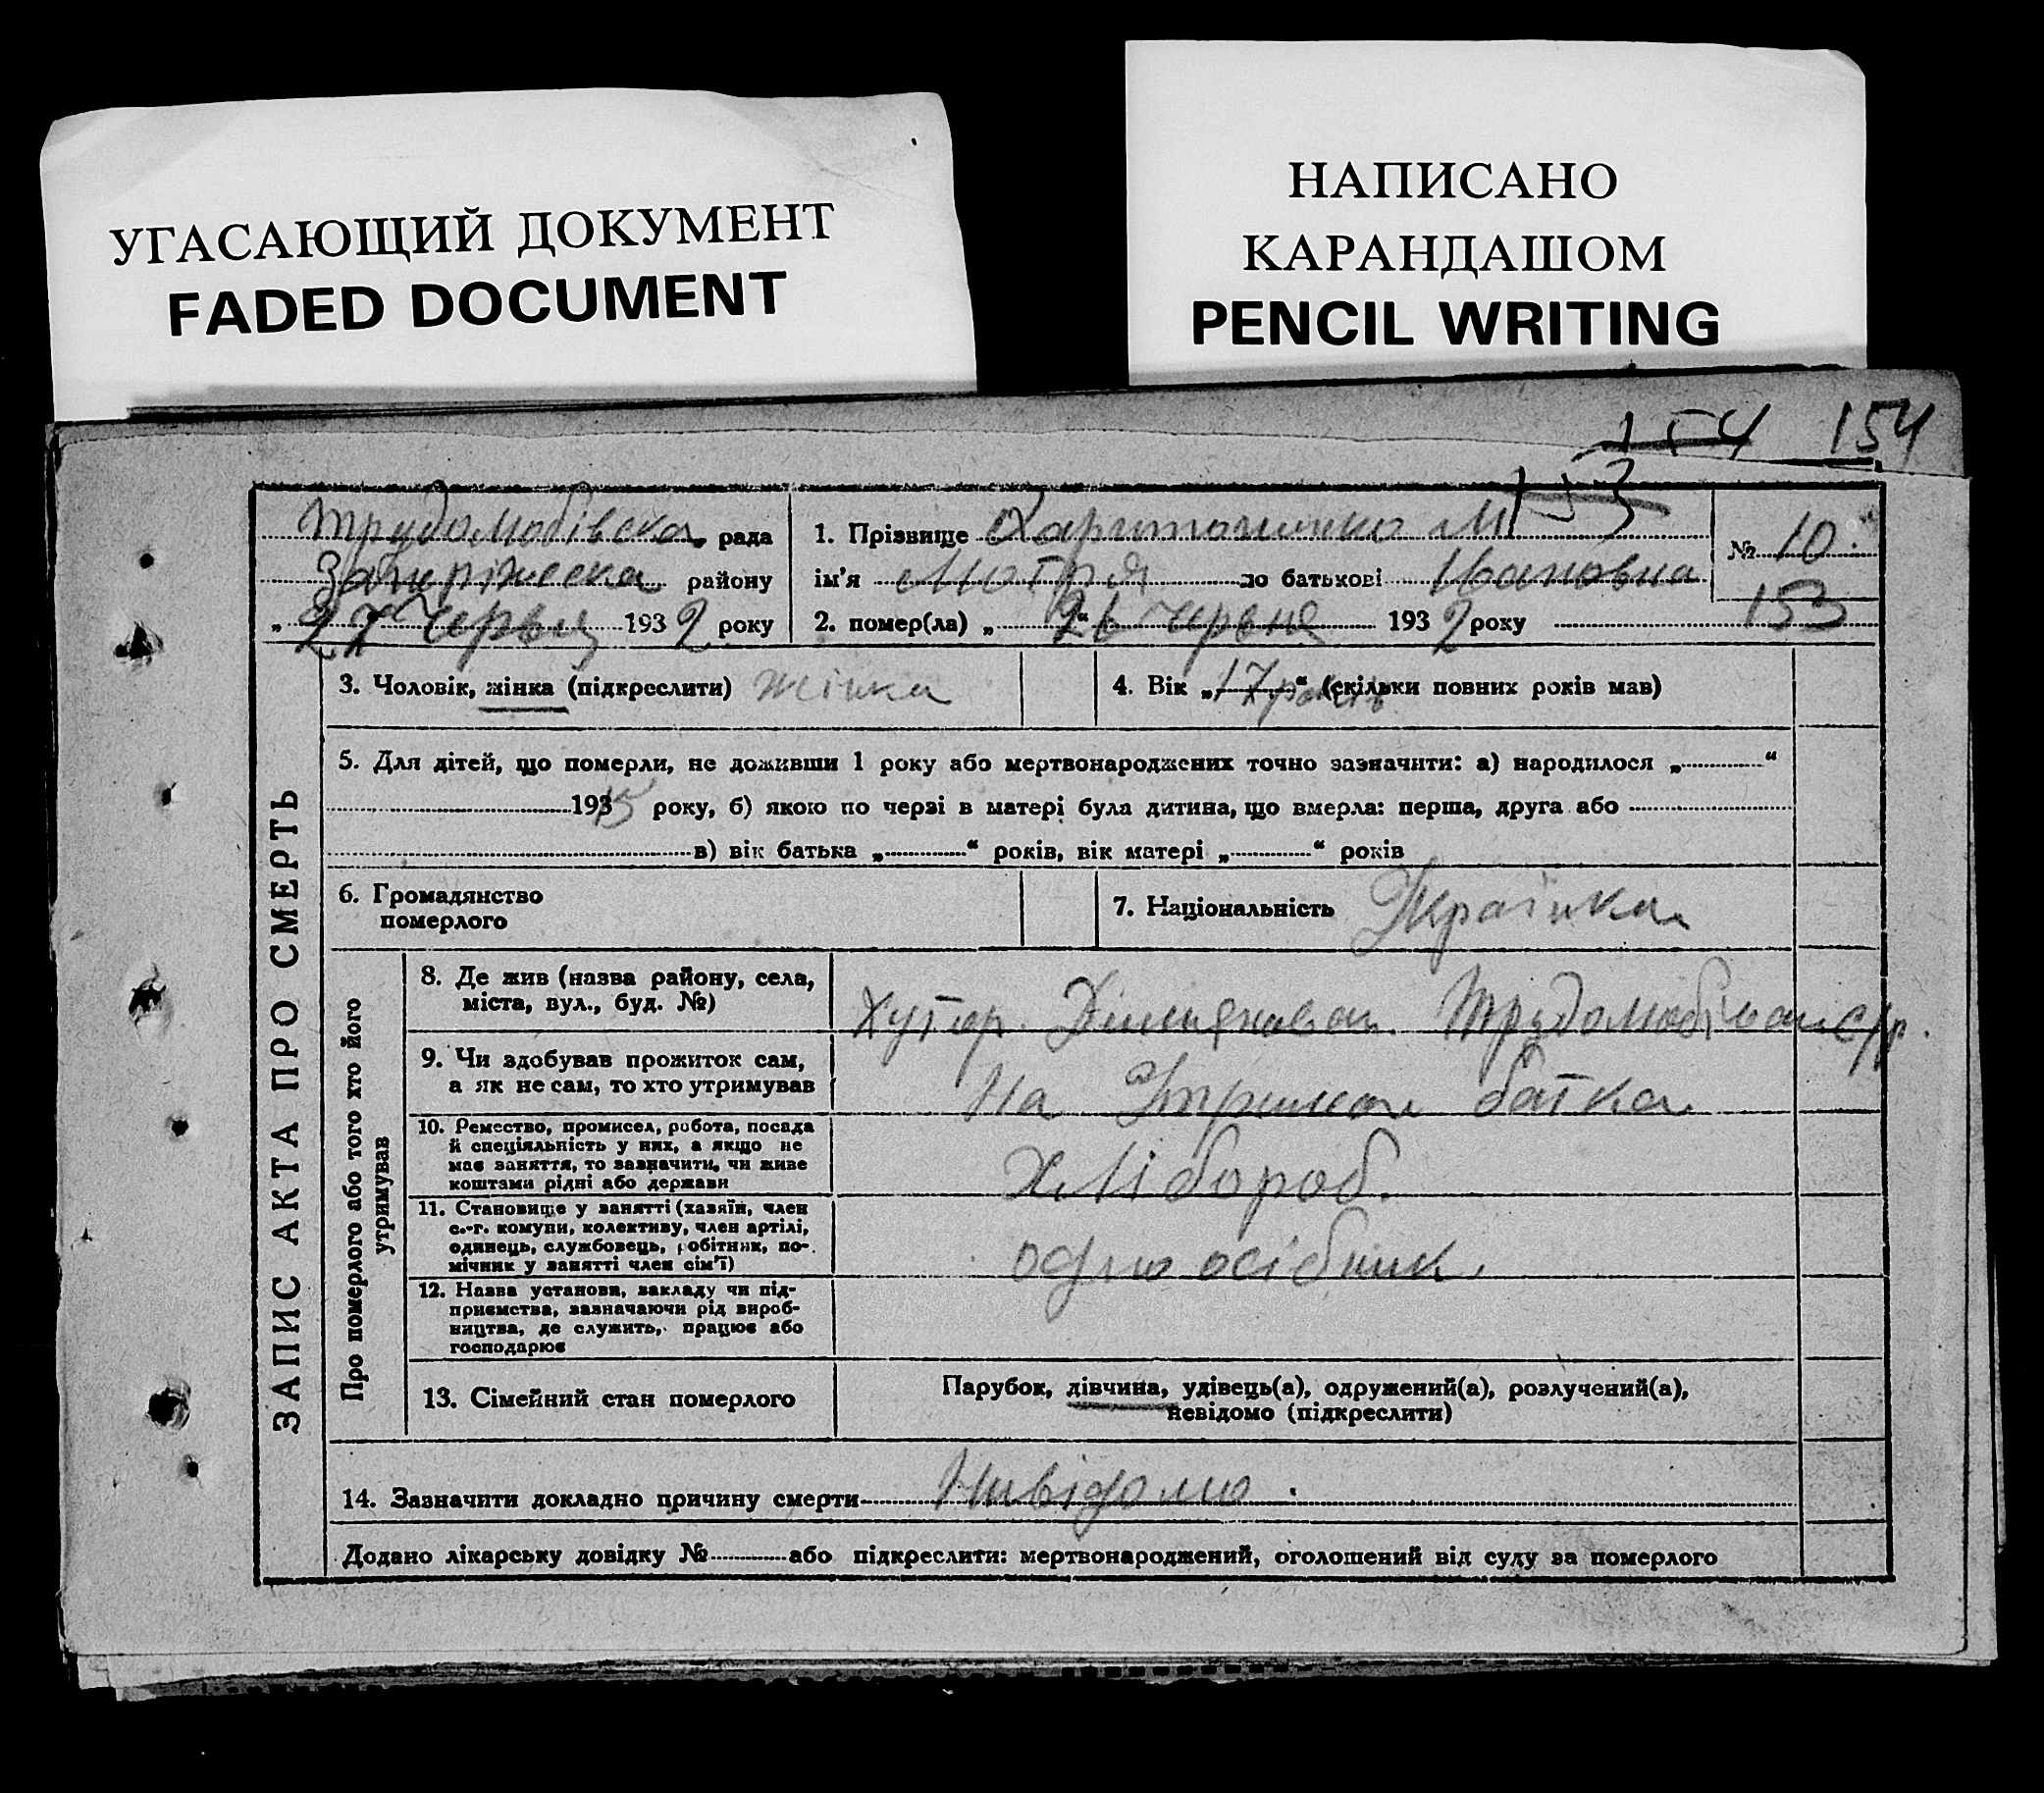 УГАСАЮЩИЙ ДОКУМЕНТ
FADED DOCUMENT
НАПИСАНО
КАРАНДАШОМ
PENCIL WRITING
154 154
153
Трудолюбівска рада
Запоріжска району
„27“ Червня 1932 року
1. Прізвище Харитоненко М
ім'я Мотря по батькові Івановна
2. помер(ла) „26“ червня 1932 року
№ 10.
153
ЗАПИС АКТА ПРО СМЕРТЬ
3. Чоловік, жінка (підкреслити) жінка
4. Вік „17 років“ (скільки повних років мав)
5. Для дітей, що померли, не доживши 1 року або мертвонароджених точно зазначити: а) народилося „ “
193 року, б) якою по черзі в матері була дитина, що вмерла: перша, друга або
в) вік батька „ “ років, вік матері „ “ років
6. Громадянство
померлого
7. Національність Українка
Про померлого або того хто його
утримував
8. Де жив (назва району, села,
міста, вул., буд. №)
Хутор Трудолюбівська с/р.
9. Чи здобував прожиток сам,
а як не сам, то хто утримував
На Утриман батка
10. Ремество, промисел, робота, посада
й спеціяльність у них, а якщо не
має заняття, то зазначити, чи живе
коштами рідні або держави
Хлібороб.
11. Становище у занятті (хазяїн, член
с.-г. комуни, колективу, член артілі,
одинець, службовець, робітник, по-
мічник у занятті член сім'ї)
одноосібник.
12. Назва установи, закладу чи під-
приємства, зазначаючи рід вироб-
ництва, де служить, працює або
господарює
13. Сімейний стан померлого
Парубок, дівчина, удівець(а), одружений(а), розлучений(а),
невідомо (підкреслити)
14. Зазначити докладно причину смерти Нивідомо.
Додано лікарську довідку № або підкреслити: мертвонароджений, оголошений від суду за померлого